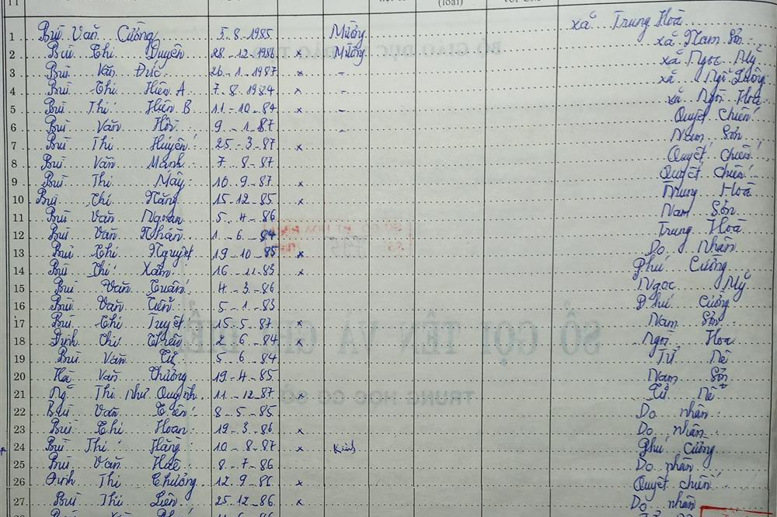 1 Bùi Văn Cường 5.8.1985 Mường xã Trung Hoà
2 Bùi Thị Duyên 28.12.1986 x Mường xã Nam Sơn
3 Bùi Văn Đức 26.1.1987 x - xã Ngọc Mỹ
4 Bùi Thị Hiên A 7.8.1984 x - xã Ngổ Luông
5 Bùi Thị Hiên B 11-10-84 x - xã Ngòi Hoa
6 Bùi Văn 9-1-87 - Quyết Chiến
7 Bùi Thị Huyền 25-3-87 x Nam Sơn
8 Bùi Văn Mạnh 7-8-87 Quyết Chiến
9 Bùi Thị Mây 10.9-87 x Quyết Chiến
10 Bùi Thị Năng 15-12.85 x Trung Hoà
11 Bùi Văn 5-4-86 Nam Sơn
12 Bùi Văn Nhàn 1-6-84 Trung Hoà
13 Bùi Thị Nguyệt 19-10-85 x Do Nhân
14 Bùi Thị Xâm 16-11-85 x Phú Cường
15 Bùi Văn Tuấn 4-3-86 Ngọc Mỹ
16 Bùi Văn Tiến 5-1-83 Phú Cường
17 Bùi Thị Tuyết 15-5-87 x Nam Sơn
18 Đinh Thị 2-6-84 x Ngòi Hoa
19 Bùi Văn Tử 5-6-84 Tử Nê
20 Hà Văn Thưởng 19-4-85 Nam Sơn
21 Thị Như Quỳnh 11-12-87 x Tử Nê
22 Bùi Văn 8-5-85 Do nhân
23 Bùi Thị Hoan 19-3-86 x Do nhân
24 Bùi Thị Hằng 10-8-87 x Kinh Phú Cường
25 Bùi Văn 8-7-86 Do nhân
26 Đinh Thị Thưởng 12.9-86 x Quyết chiến
27 Bùi Thị Liên 25-12.86 x Do nhân